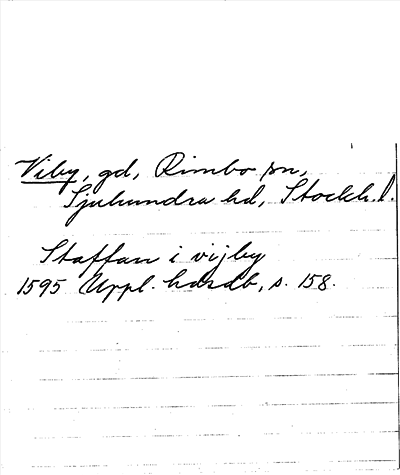 Viby, gd, Rimbo sn,
Sjuhundra hd, Stockh. l.
Staffan i vijby
1595 Uppl. hdrdb, s. 158.